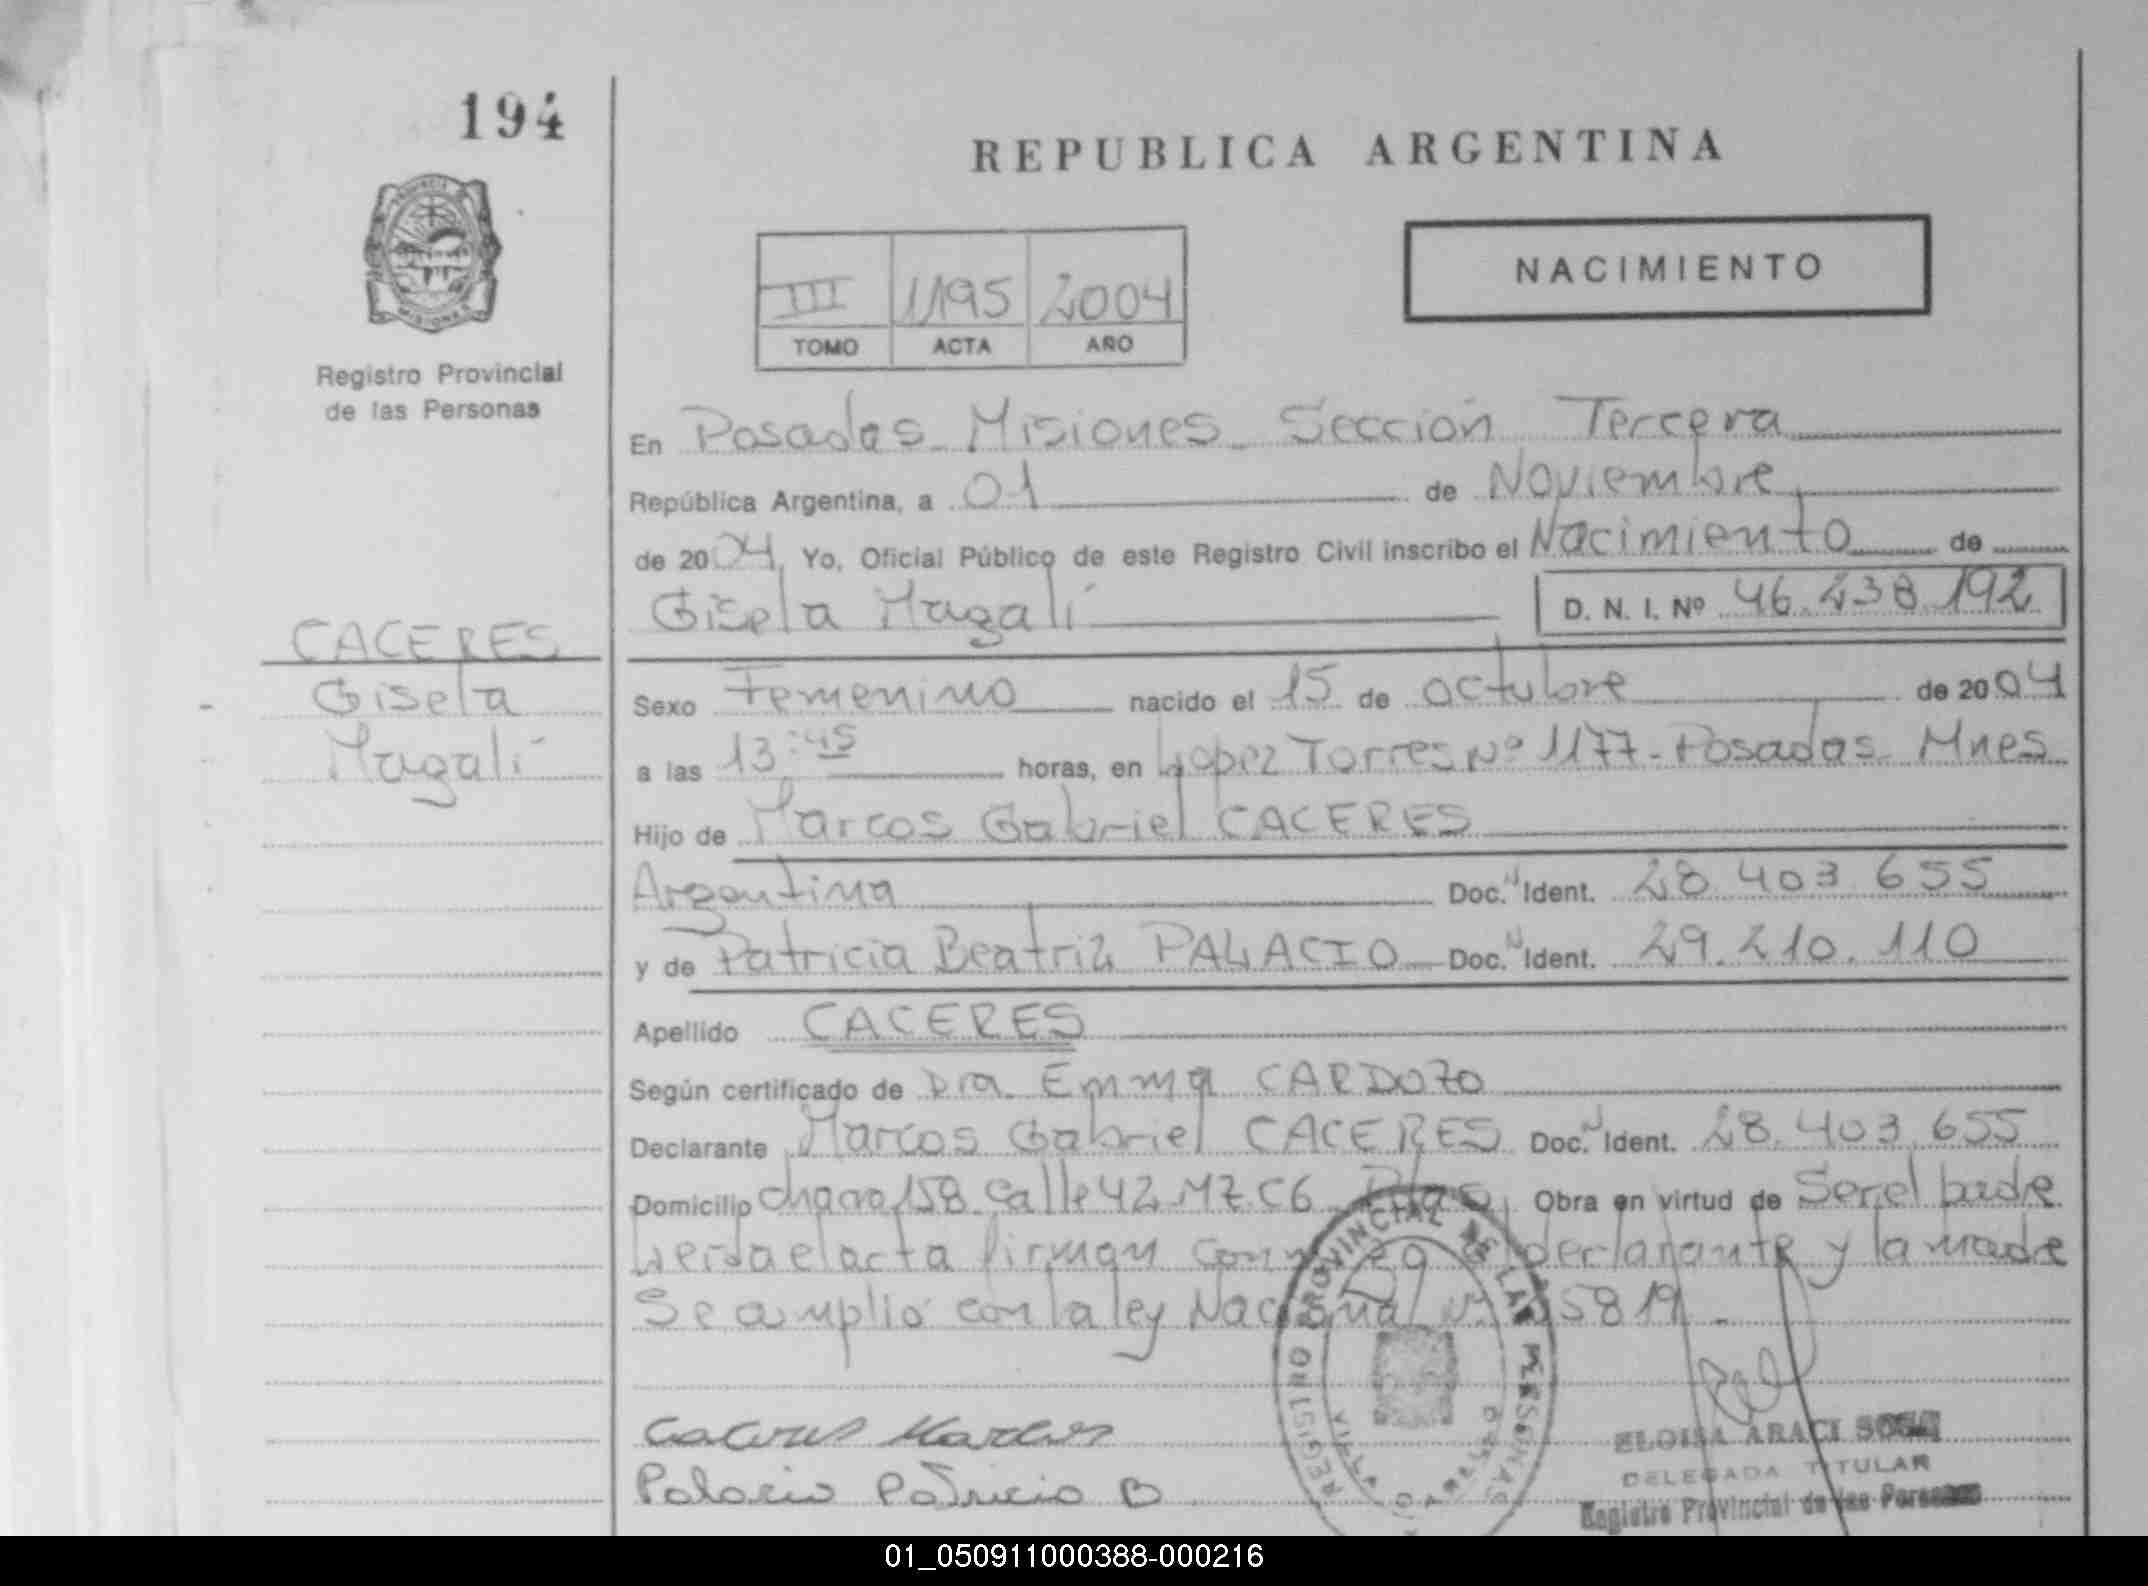 194
REPUBLICA ARGENTINA
PROVINCIA
MISIONES
Registro Provincial
de las Personas
III 1195 2004
TOMO ACTA AÑO
NACIMIENTO
En Posadas Misiones Sección Tercera
República Argentina, a 01 de Noviembre
de 2004, Yo, Oficial Público de este Registro Civil inscribo el Nacimiento de
Gisela Magalí D. N. I. Nº 46.238.192
CACERES
Gisela
Magalí
Sexo Femenino nacido el 15 de octubre de 2004
a las 13:45 horas, en Lopez Torres Nº 1177-Posadas Mnes
Hijo de Marcos Gabriel CACERES
Argentina Doc. N Ident. 28.403.655
y de Patricia Beatriz PALACIO Doc. N Ident. 29.210.110
Apellido CACERES
Según certificado de Dra. Emma CARDOZO
Declarante Marcos Gabriel CACERES Doc. N Ident. 28.403.655
Domicilio chacra 158 Calle 42 MZ. C6 Pdas Obra en virtud de Ser el padre
Leida el acta firman conmigo el declarante y la madre
Se amplió con la ley Nacional Nº 25819.-
Caceres Marcos
Palacio Patricia B
REGISTRO PROVINCIAL DE LAS PERSONAS
VILLA
ELOISA ARACI SOSA
DELEGADA TITULAR
Registro Provincial de las Personas
01_050911000388-000216